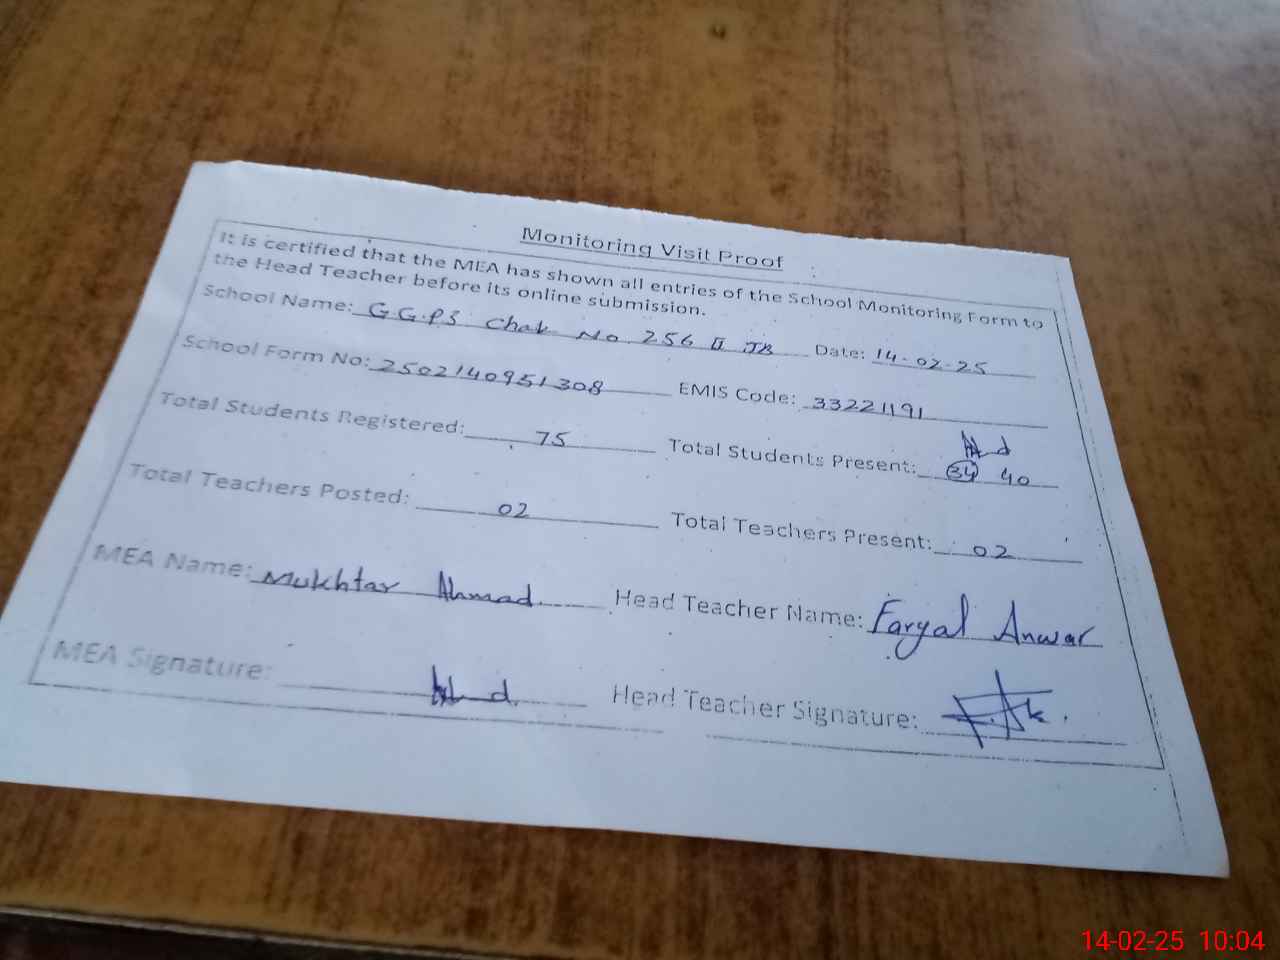 Monitoring Visit Proof
It is certified that the MEA has shown all entries of the School Monitoring Form to
the Head Teacher before its online submission.
School Name: G.G.PS Chak No. 256 II JB Date: 14-02-25
School Form No: 2502140951308 EMIS Code: 33221191
Total Students Registered: 75 Total Students Present: 34 40
Total Teachers Posted: 02 Total Teachers Present: 02
MEA Name: Mukhtar Ahmad Head Teacher Name: Faryal Anwar
MEA Signature: Head Teacher Signature:
14-02-25 10:04